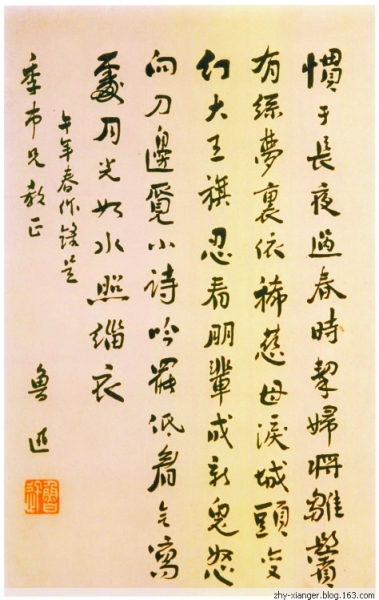 慣于長夜過春時挈婦將雛鬢
有絲夢裏依稀慈母淚城頭變
幻大王旗忍看朋輩成新鬼怒
向刀邊覓小詩吟罷低眉無寫
處月光如水照緇衣
午年春作錄呈
季市兄教正
魯迅
魯迅
zhy-xianger.blog.163.com